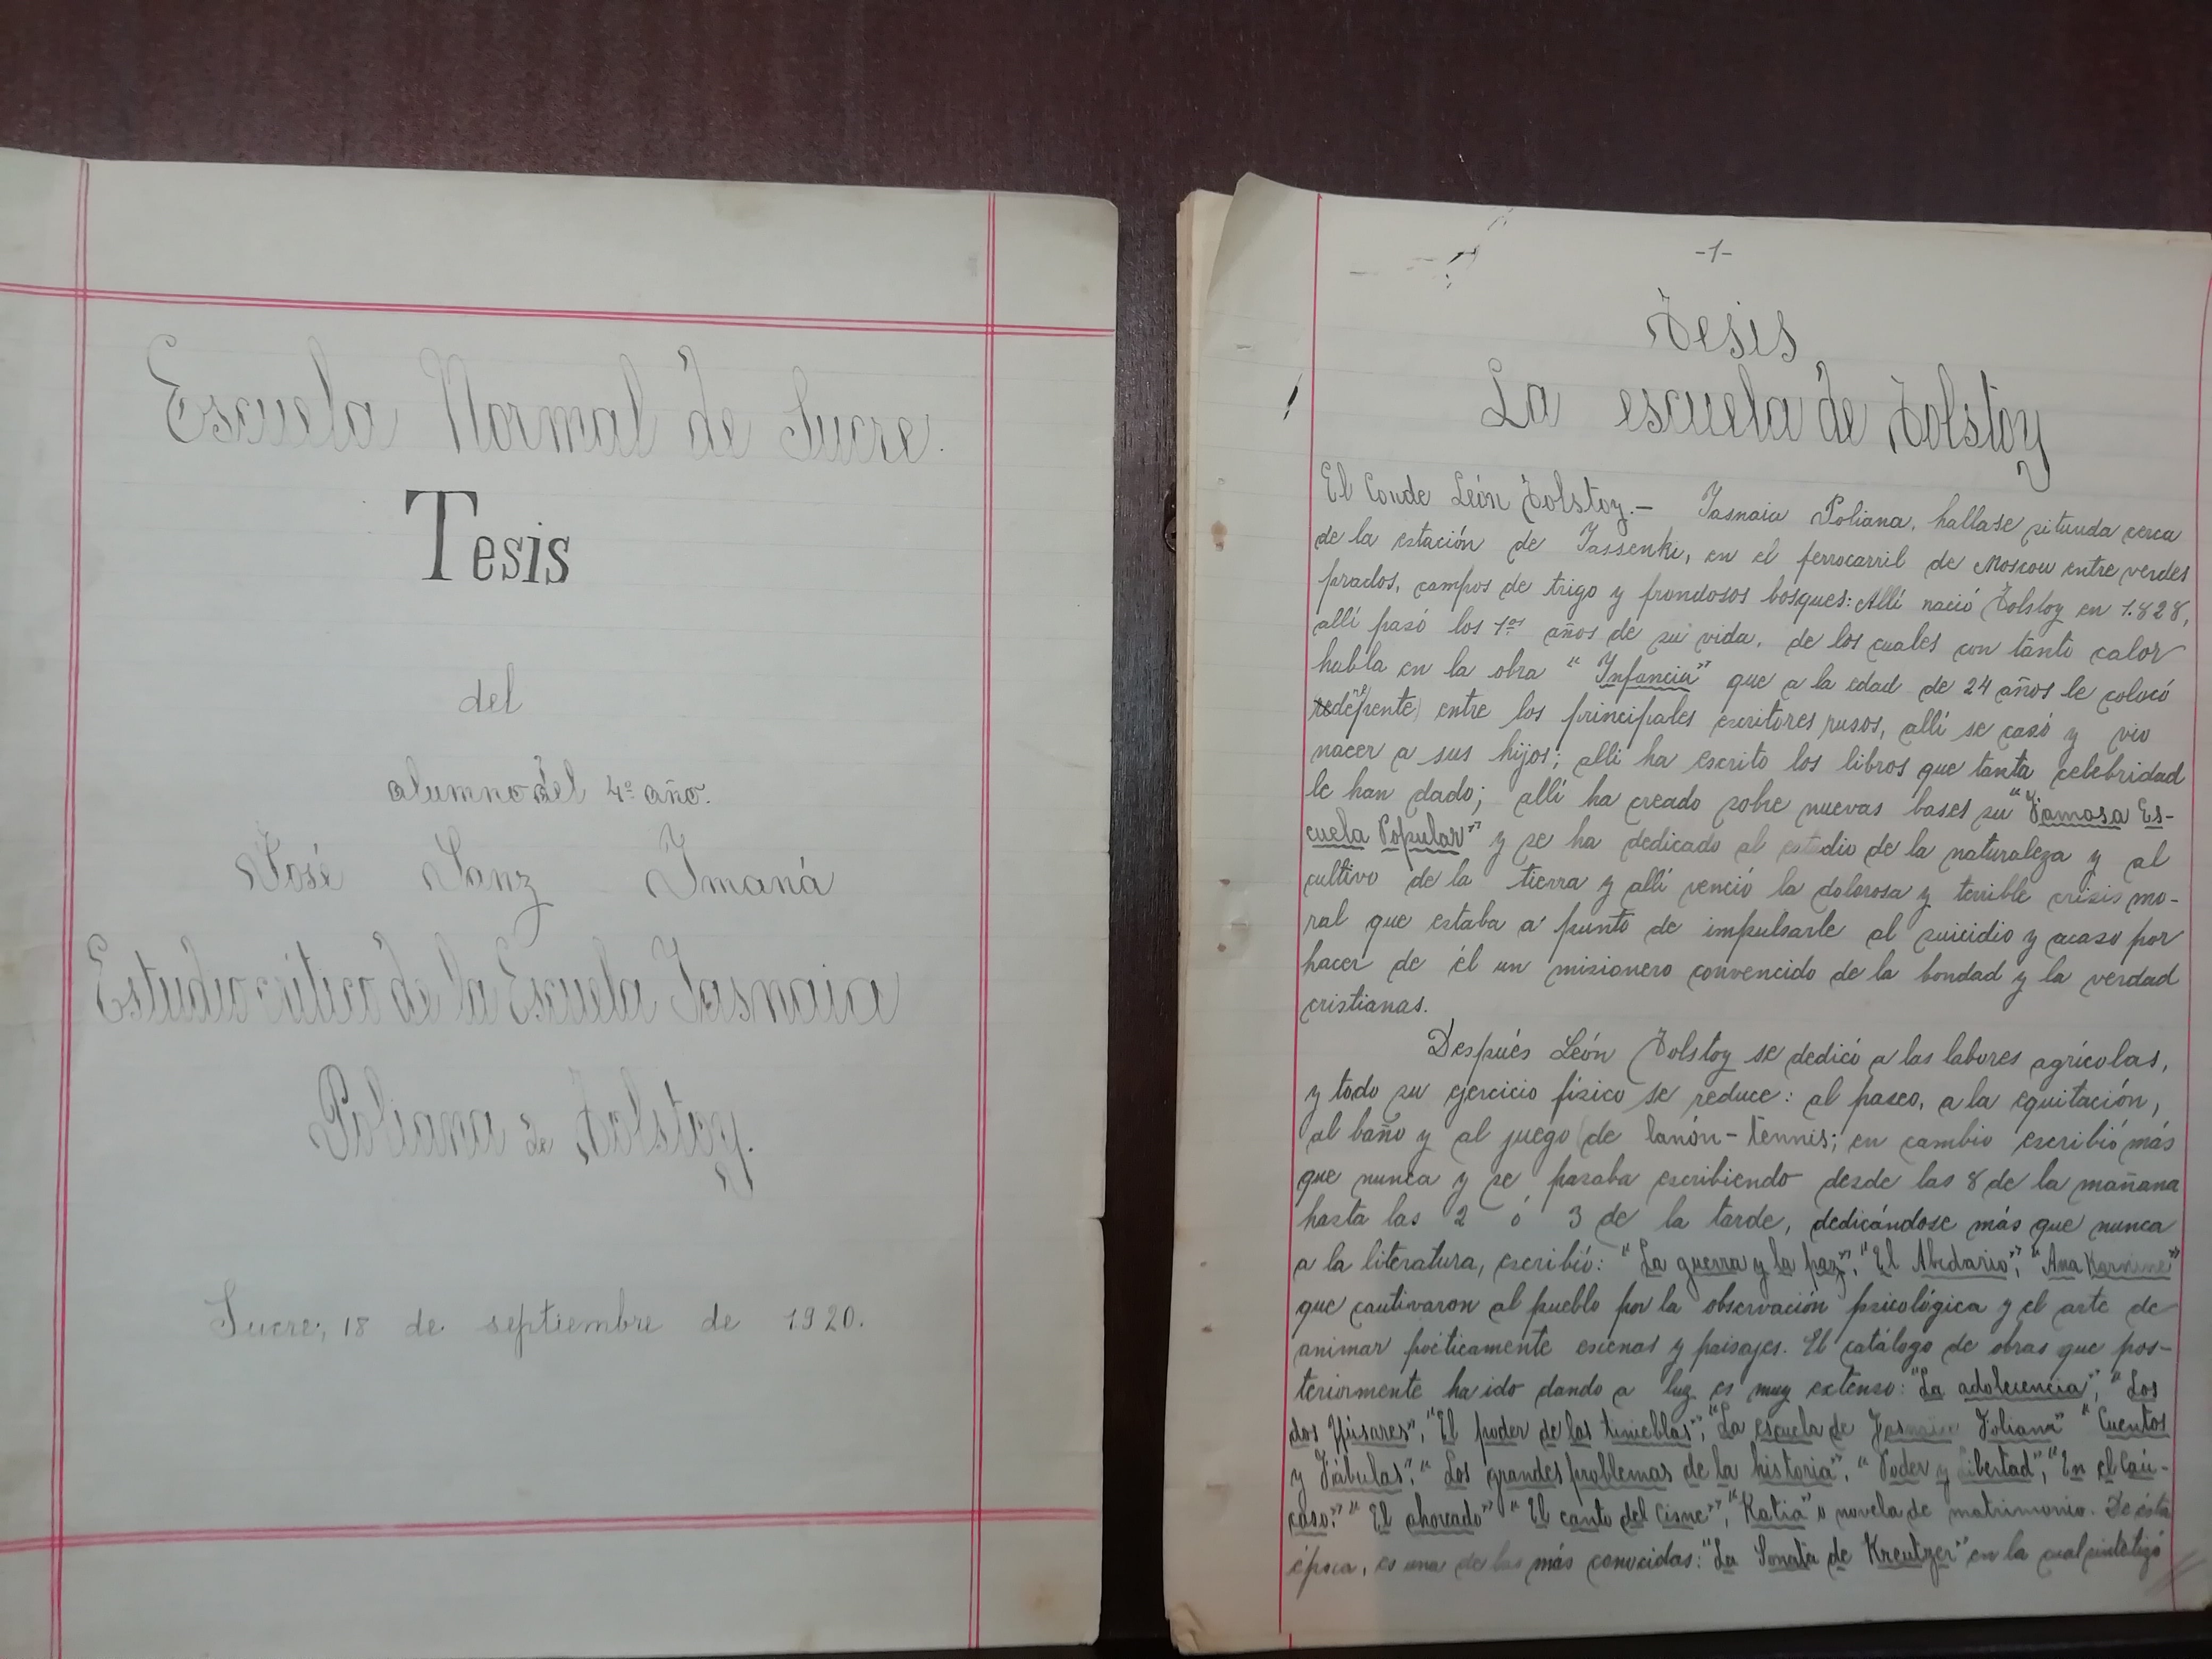 Escuela Normal de Sucre.
Tesis
del
alumno del 4º año.
José Sanz Imaná
Estudio crítico de la Escuela Iasnaia
Poliana de Tolstoy.
Sucre, 18 de septiembre de 1920.
-1-
Tesis
La escuela de Tolstoy
El Conde León Tolstoy.- Iasnaia Poliana, hallase situada cerca
de la estación de Iassenki, en el ferrocarril de Moscou entre verdes
prados, campos de trigo y frondosos bosques: Allí nació Tolstoy en 1.828,
allí pasó los 1os años de su vida, de los cuales con tanto calor
habla en la obra "Infancia" que a la edad de 24 años le colocó
entre los principales escritores rusos, allí se casó y vio
nacer a sus hijos; alli ha escrito los libros que tanta celebridad
le han dado; allí ha creado sobre nuevas bases su "Famosa Es-
cuela Popular" y se ha dedicado al estudio de la naturaleza y al
cultivo de la tierra y allí venció la dolorosa y terrible crisis mo-
ral que estaba a punto de impulsarle al suicidio y acaso por
hacer de él un misionero convencido de la bondad y la verdad
cristianas.
Después León Tolstoy se dedicó a las labores agrícolas,
y todo su ejercicio físico se reduce: al paseo, a la equitación,
al baño y al juego de lanón-tennis; en cambio escribió más
que nunca y se pasaba escribiendo desde las 8 de la mañana
hasta las 2 ó 3 de la tarde, dedicándose más que nunca
a la literatura, escribió: "La guerra y la paz", "El Abedario", "Ana
que cautivaron al pueblo por la observación psicológica y el arte de
animar poéticamente escenas y paisajes. El catálogo de obras que pos-
teriormente ha ido dando a luz es muy extenso: "La adolecencia", "Los
dos Húsares", "El poder de las tinieblas", "La escuela de Poliana" "Cuentos
y Fábulas", "Los grandes problemas de la historia", "Poder y Libertad", "En el Cáu-
caso." "El ahorcado" "El canto del Cisne", "Katia" o novela de matrimonio. De ésta
época, es una de las más conocidas: "La Sonata de Kreutzer" en la cual sintetizó